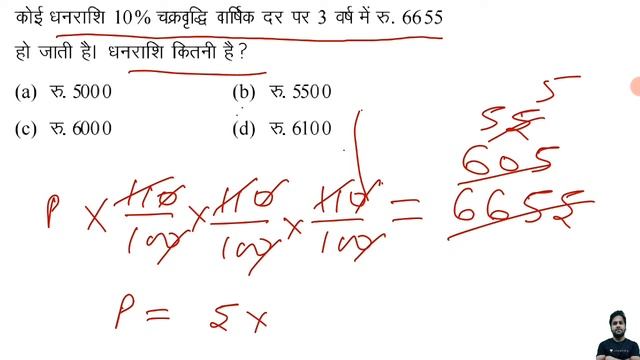 कोई धनराशि 10% चक्रवृद्धि वार्षिक दर पर 3 वर्ष में रु. 6655
हो जाती है। धनराशि कितनी है?
(a) रु. 5000 (b) रु. 5500
(c) रु. 6000 (d) रु. 6100
5
55
605
P × 110/100 × 110/100 × 110/100 = 6655
P = 5 ×